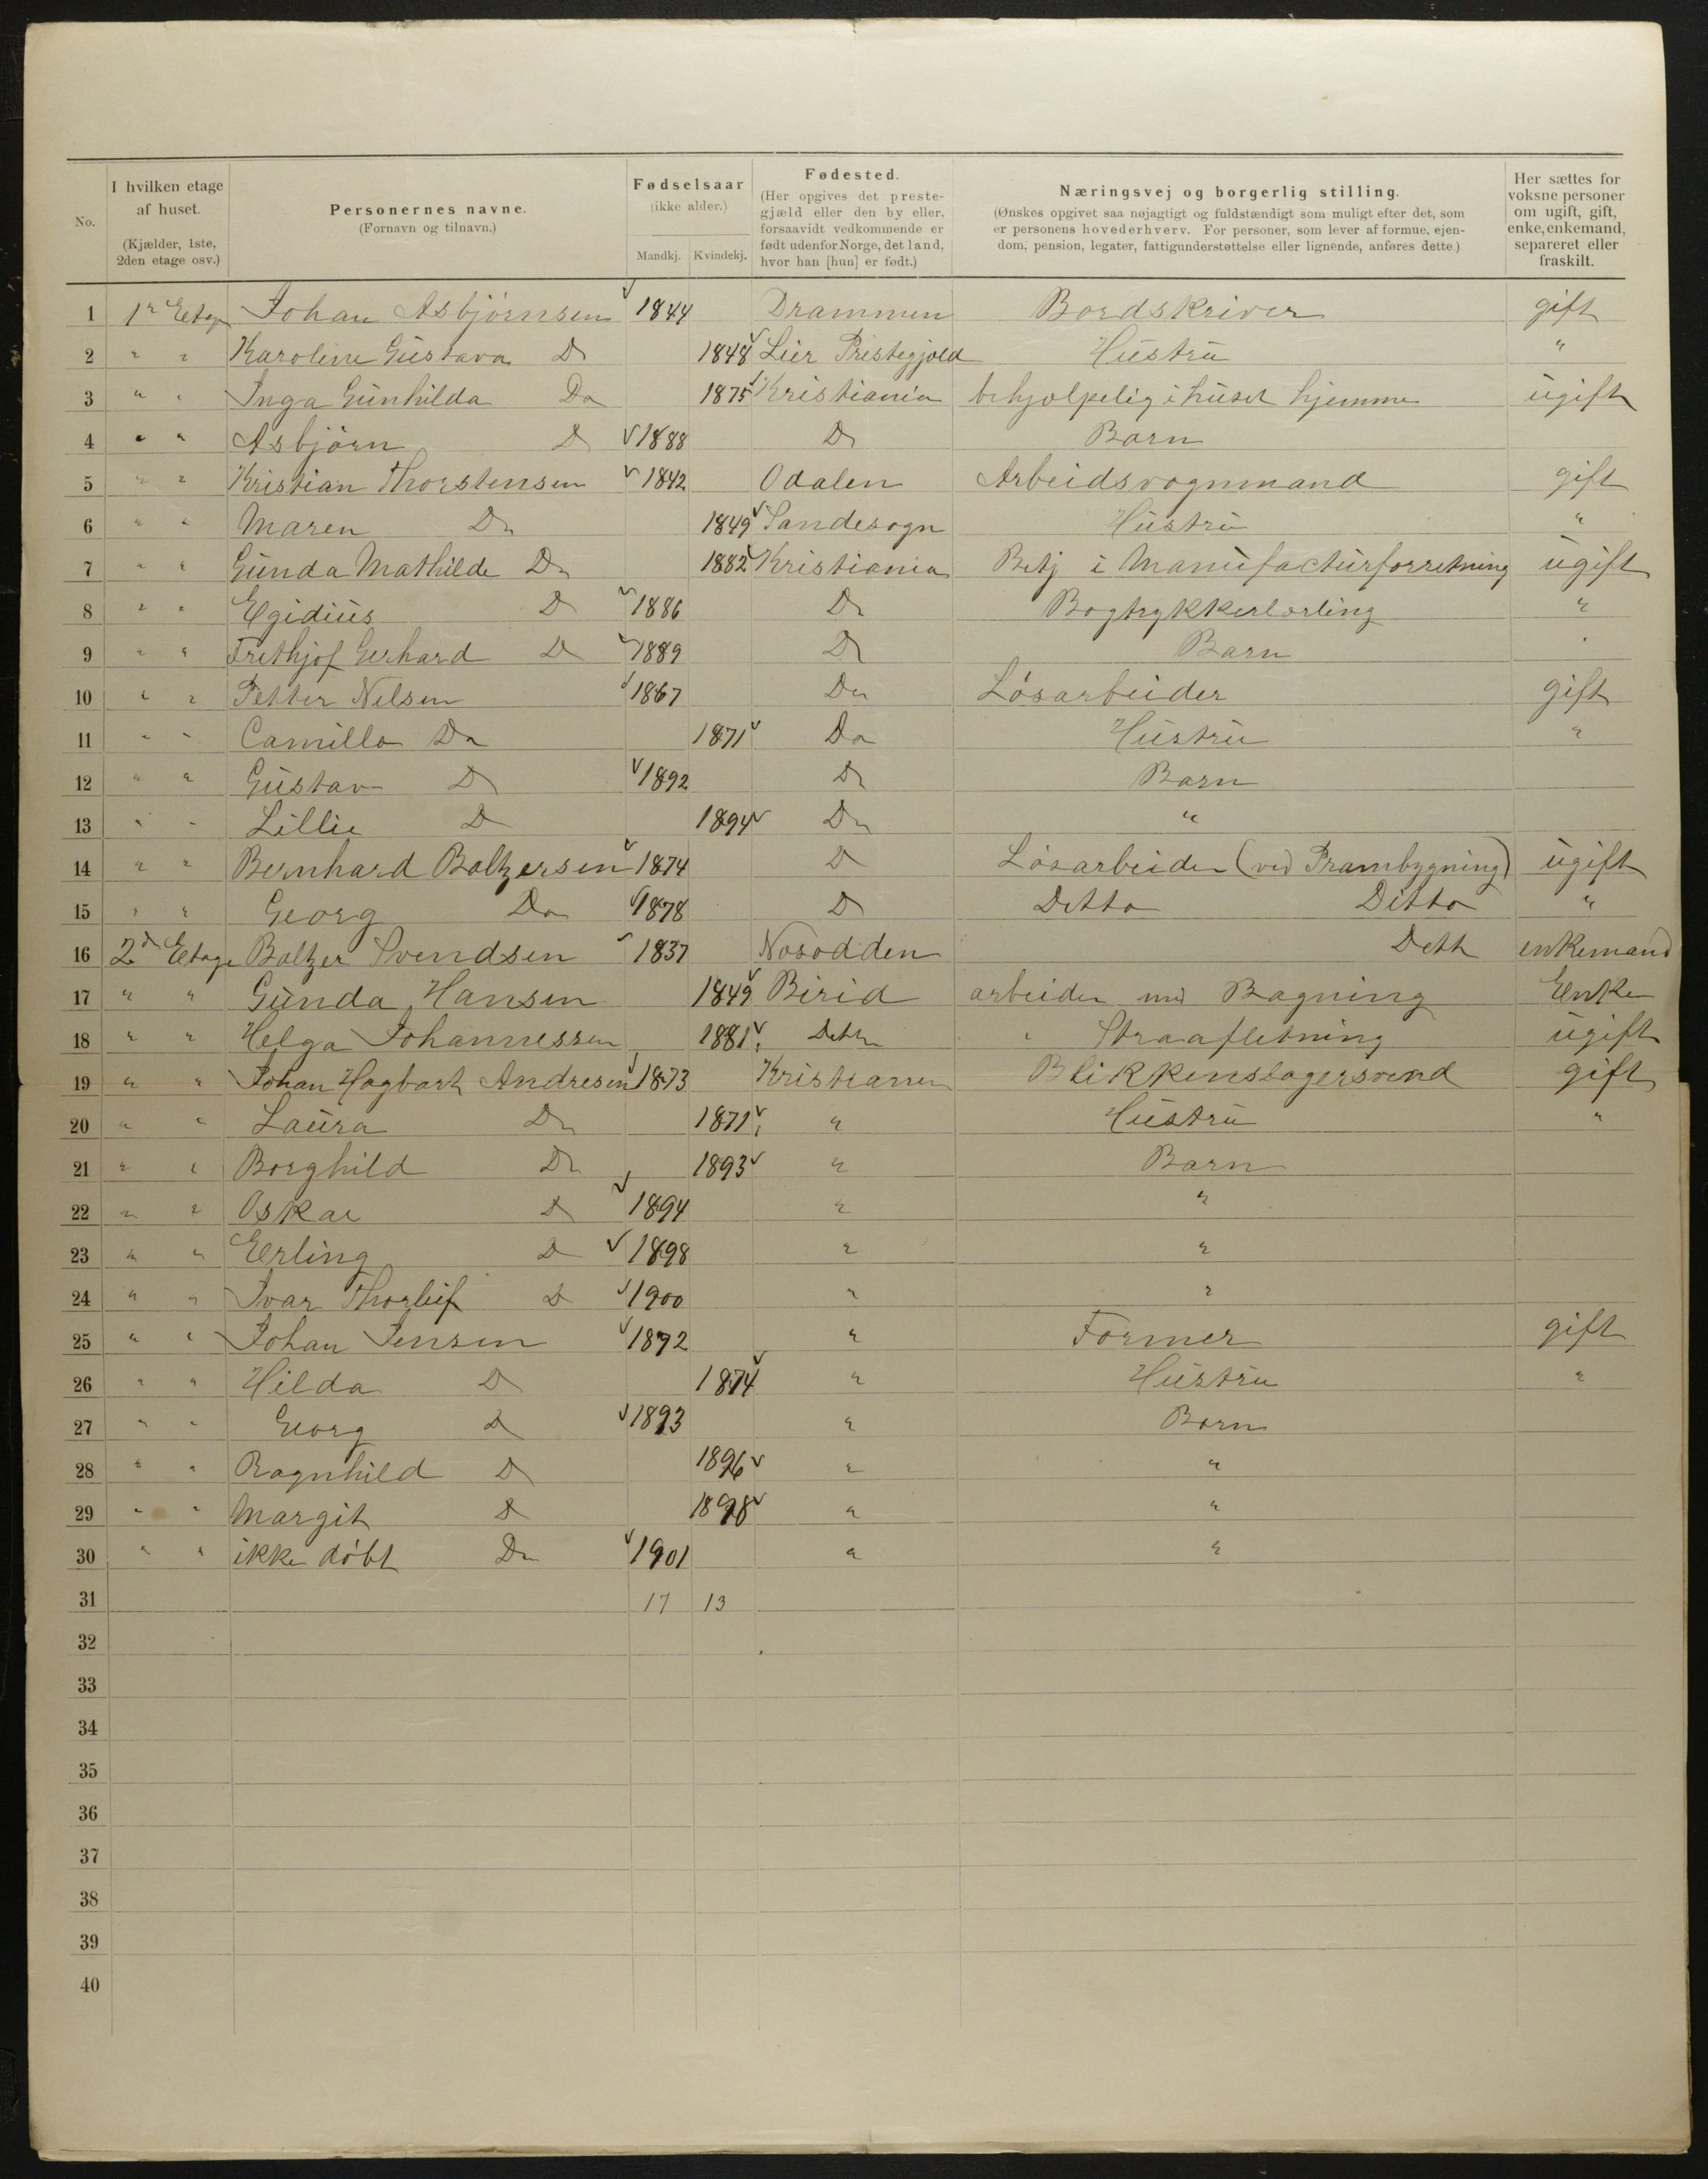 No.
I hvilken etage af huset.
(Kjælder, 1ste, 2den etage osv.)
Personernes navne.
(Fornavn og tilnavn.)
Fødselsaar
(ikke alder.)
Mandkj. Kvindekj.
Fødested.
(Her opgives det prestegjæld eller den by eller, forsaavidt vedkommende er født udenfor Norge, det land, hvor han [hun] er født.)
Næringsvej og borgerlig stilling.
(Ønskes opgivet saa nøjagtigt og fuldstændigt som muligt efter det, som er personens hovederhverv. For personer, som lever af formue, ejendom, pension, legater, fattigunderstøttelse eller lignende, anføres dette.)
Her sættes for voksne personer om ugift, gift, enke, enkemand, separeret eller fraskilt.
1 1ste Etage Johan Asbjörnsen 1844 Drammen Bordskriver gift
2 " " Karoline Gustava Do 1848 Lier Prestegjeld Hustru "
3 " " Inga Gunhilda Do 1875 Kristiania behjelpelig i huset hjemme ugift
4 " " Asbjörn Do 1888 Do Barn
5 " " Kristian Thorstensen 1842 Odalen Arbeidsvognmand gift
6 " " Maren Do 1849 Sandesogn Hustru "
7 " " Gunda Mathilde Do 1882 Kristiania Betj i Manufacturforretning ugift
8 " " Egidius Do 1886 Do Bogtrykkerlerling "
9 " " Frethjof Gerhard Do 1889 Do Barn "
10 " " Petter Nelsen 1867 Do Lösarbeider gift
11 " " Camilla Do 1871 Do Hustru "
12 " " Gustav Do 1892 Do Barn
13 " " Lillie Do 1894 Do "
14 " " Bernhard Baltzersen 1874 Do Lösarbeider (ved Prambygning) ugift
15 " " Georg Do 1878 Do Ditto Ditto "
16 2d Etage Baltzer Svendsen 1837 Nesodden Dett enkemand
17 " " Gunda Hansen 1849 Birid arbeider med Bagning Enke
18 " " Helga Johannessen 1881 Detto " Straafletning ugift
19 " " Johan Hagbart Andresen 1873 Kristiania Blikkenslagersvend gift
20 " " Laura Do 1871 " Hustru "
21 " " Borghild Do 1893 " Barn
22 " " Oskar Do 1894 " "
23 " " Erling Do 1898 " "
24 " " Ivar Thorleif Do 1900 " "
25 " " Johan Jensen 1872 " Former gift
26 " " Hilda Do 1874 " Hustru "
27 " " Georg Do 1893 " Barn
28 " " Ragnhild Do 1896 " "
29 " " Margit Do 1898 " "
30 " " ikke döbt Do 1901 " "
31 17 13
32
33
34
35
36
37
38
39
40